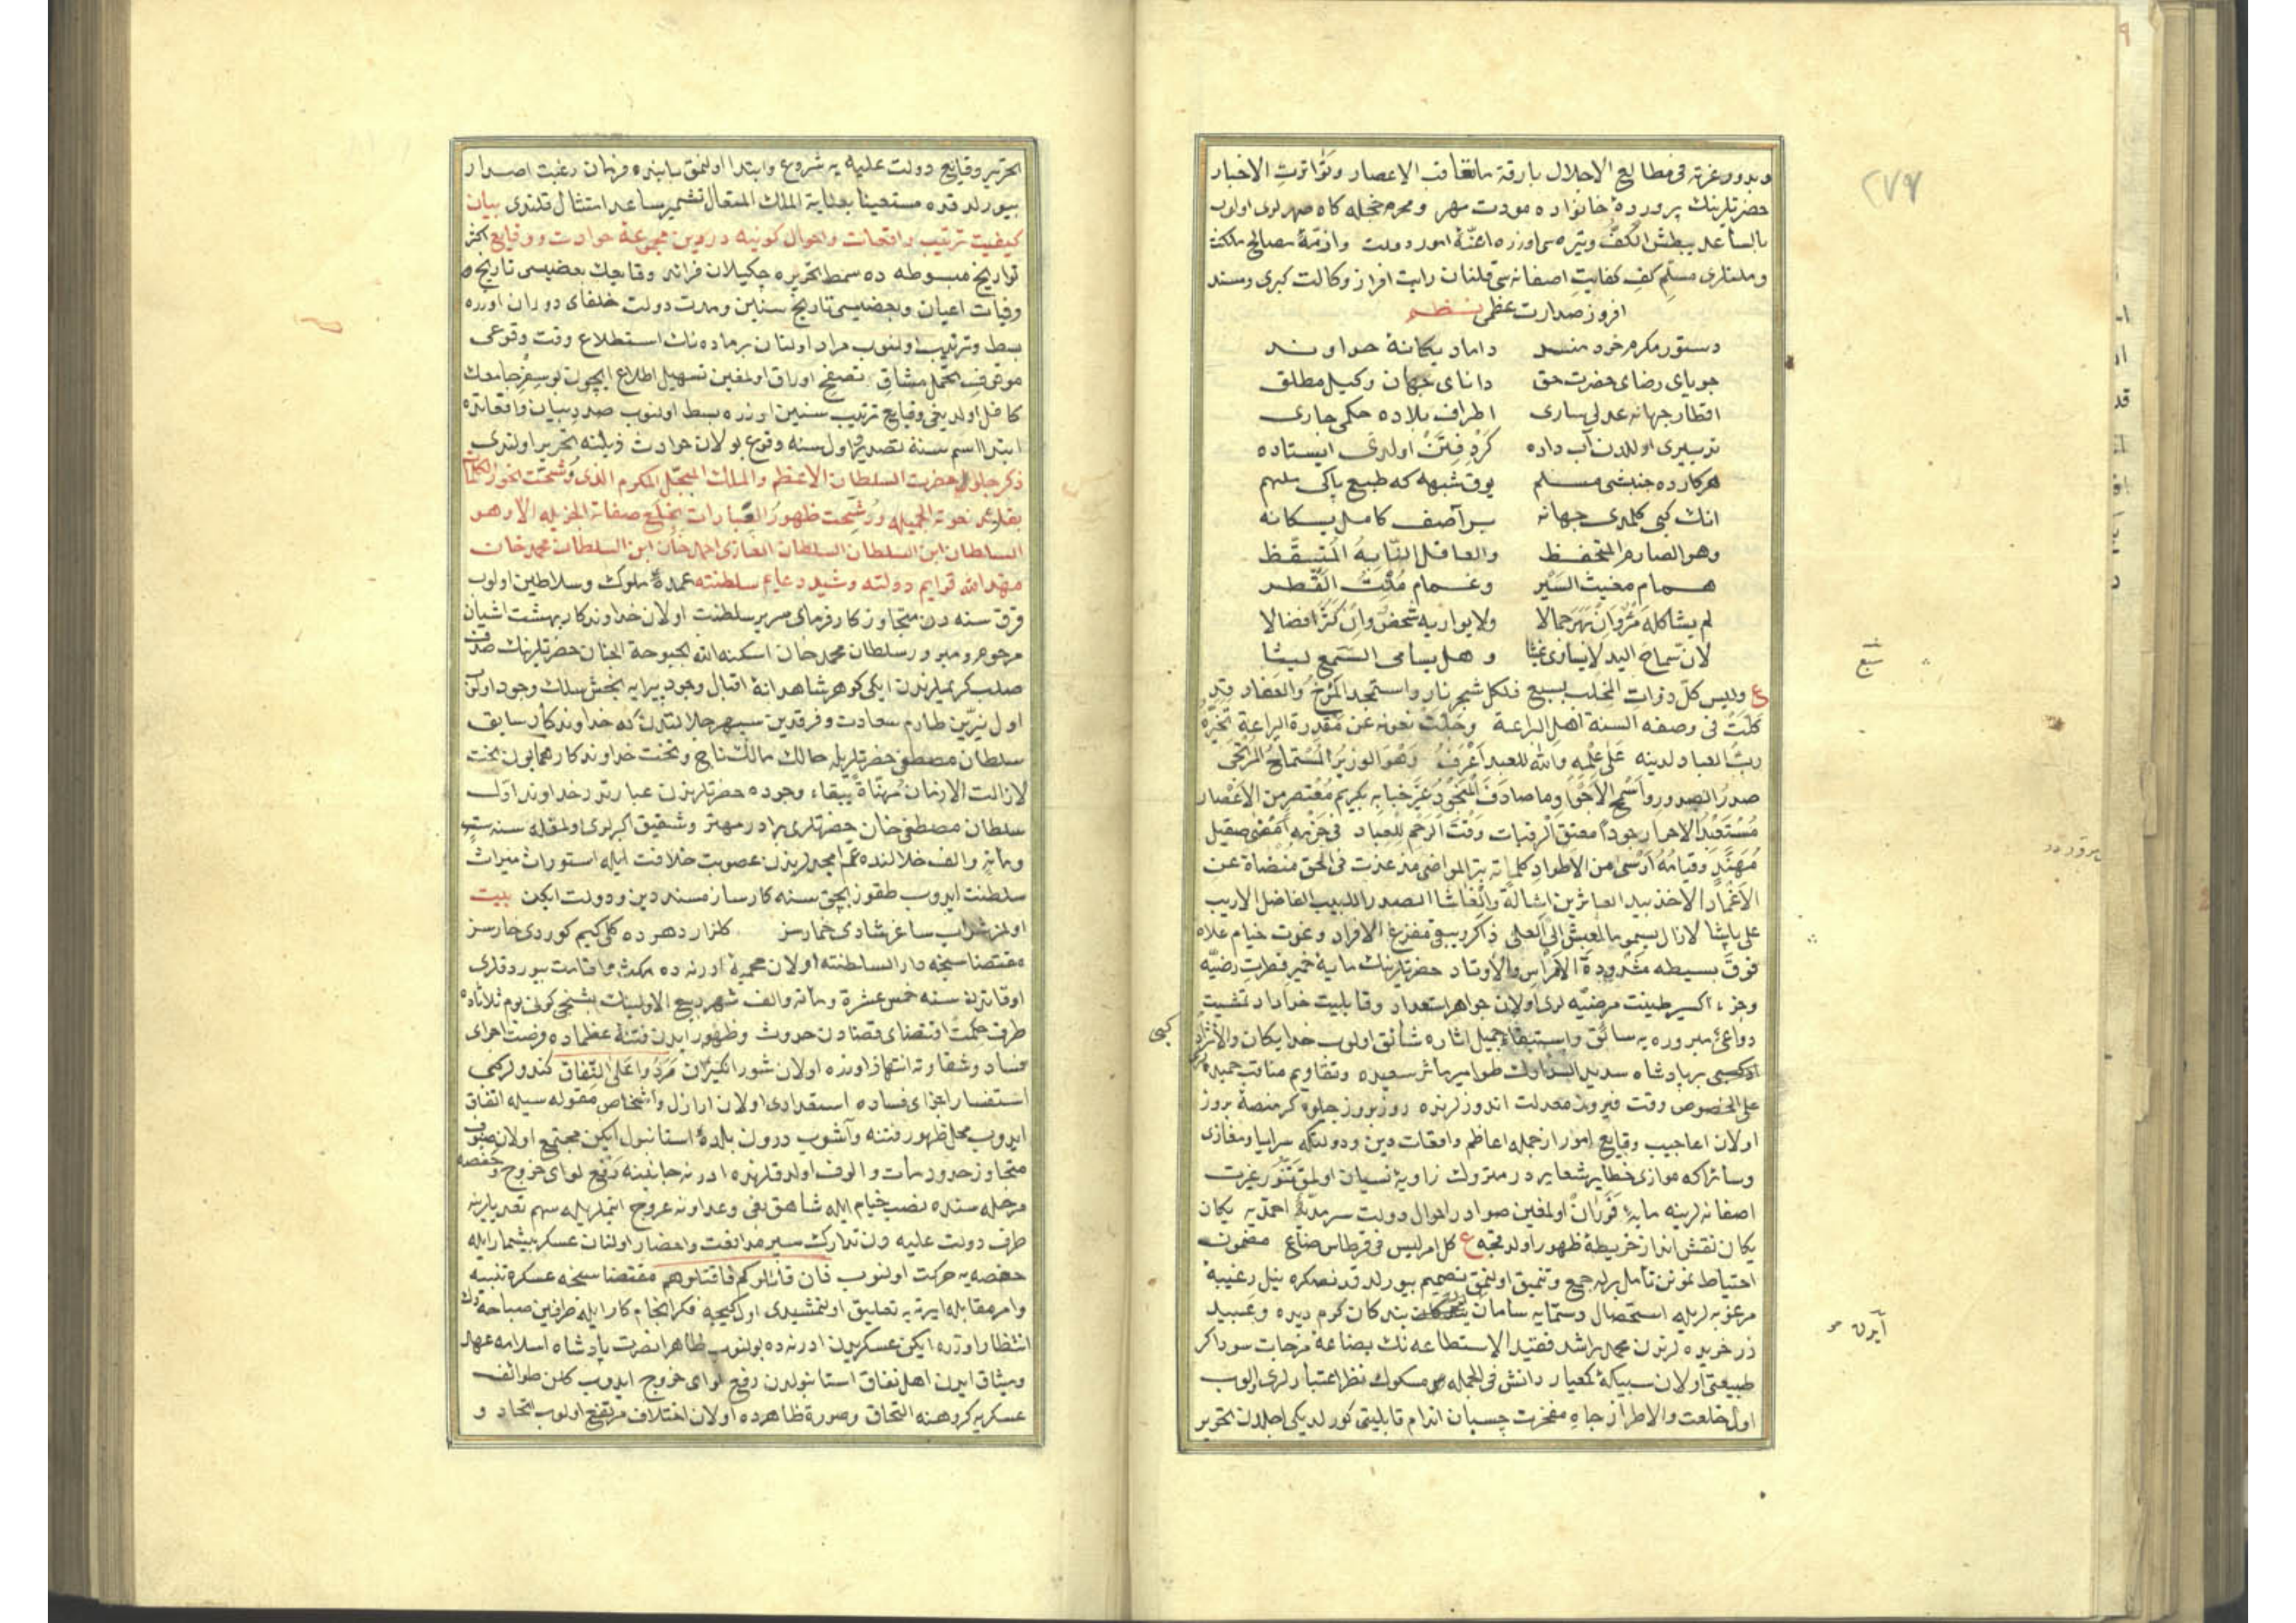 ٢٧٧
وبدور غرته فى مطالع الاجلال بارقة ما تعاقب الاعصار وتواترت الاخبار
حضرتلرينك پرورده خانواده مودت مهر ومحرم حجله كاه صهرلرى اولوب
بالساعد يبطش الكف وتيره سى اوزره اعنّۀ امور دولت وازمّۀ مصالح ملكت
وملتلرى مسلّم كف كفايت اصفانه سى قلنان رايت افراز وكالت كبرى ومسند
افروز صدارت عظمى نظم
دستور مكرم خردمند داماد يكانۀ خداوند
جوياى رضاى حضرت حق داناى جهان وكيل مطلق
اقطار جهانه عدلى سارى اطراف بلاده حكمى جارى
تدبيرى اولدن آب داده گرد فتن اولدى ايستاده
هر كارده جنبشى مسلم يوق شبهه كه طبع پاكى ملهم
انك كبى كلمدى جهانه بر آصف كامل يكانه
وهو الصارم المتحفظ والعاقل النابه المتيقظ
همام مغيث السير وغمام ملث القطر
لم يشاكله قمر وان بهر جمالا ولا يوازيه شخص وان كثر افضالا
لان سماح اليد لا يساوى غيثا وهل يسامى السمع ليثا
ع وليس كل ذوات المخلب بسبع فلكل شجر نار واستمجد المرخ والعفار وقد
كلت فى وصفه السنة اهل البراعة وجلت نعوته عن مقدرة اليراعة
رب العباد لدينه على علمه والله للعبد اعرف وهو الوزير
صدر الصدور واسمح الاجواد وما صادف بكريم معتصر من الاعصار
مستعبد الاحرار جودا معتق الرقبات وقت الرحم للعباد فى حزبه امضى صقيل
مهند وقيامه ارسى من الاطواد كلماته بتر المواضى مذ غدت فى الحق منضاة عن
الاغماد الاخذ بيد العاثرين اشالة وانعاشا الصدر اللبيب الفاضل الاريب
على پاشا لازال يسمو الى العلى ذاكر ويبقى مفزع الافراد وغدت خيام علاه
فوق بسيطه مشدودة الامراس والاوتاد حضرتلرينك مايۀ خمير فطرت رضيّه
وجزء اكسير طينت مرضيّه لرى اولان جواهر استعداد وقابليت خداداد تمشيت
دواعئ مبروره يه سائق واستبقاء جميل اثاره شائق اولوب خدايكان
بر پادشاه سديد طوامير مآثر سعيده وتقاويم مناقب حميده
على الخصوص وقت فيروز معدلت اندوزلرنده روز بروز جلوه كر منصۀ بروز
اولان اعاجيب وقايع امور از جمله اعاظم واقعات دين ودولتكه سرايا ومغازى
وسائرا كه موازى خطاير شعايردر متروك زاويۀ نسيان اولمق غيرت
اصفانه لرينه مايۀ فوران اولمغين صوادر احوال دولت سرمديّۀ احمديه يكان
يكان نقش انداز خريطۀ ظهور اولدقجه ع كل امر ليس فى قرطاس ضاع مضمون
احتياط نمونن تأمل برله جمع وتنميق اولنمق تصميم بيورلدقدنصكره نيل رغيبۀ
مرغوبه لريله استحصال دستمايه سامان بندكان كرم ديده وعبيد
زر خريده لرندن محمد راشد فقيد الاستطاعه نك بضاعۀ مزجات سوداكر
طبيعتى اولان سبيكۀ كمعيار دانش فى الجمله مسكوك نظر اعتبارلرى اولوب
اول خلعت والاطراز جاه مفخرت چسبان اندام قابليتى كورلديكى اجلدن تحرير
سبع
كبى
ايدن
التحرير وقايع دولت عليه يه شروع وابتدا اولنمق بابنده فرمان رغبت اصدار
بيورلدقده مستعينا بعناية الملك المتعال تشمير ساعد امتثال قلندى بيان
كيفيت ترتيب واقعات واحوال كونيه درين مجموعۀ حوادث ووقايع اكثر
تواريخ مبسوطه ده سمط تحريره چكيلان فرائد وقايعك بعضيسى تاريخ
وفيات اعيان وبعضيسى تاريخ سنين ومدت دولت خلفاى دوران اوزره
بسط وترتيب اولنوب مراد اولنان بر ماده نك استطلاع وقت وقوعى
موقوف تحمل مشاق تصفح اوراق اولمغين تسهيل اطلاع ايچون بو سفر جامعك
كافل اولديغى وقايع ترتيب سنين اوزره بسط اولنوب صدر بيان واقعاتده
ابتدا اسم سنة تصدير واول سنه وقوع بولان حوادث ذيلنه تحرير اولندى
ذكر جلوس حضرت السلطان الاعظم والملك المبجل المكرم الذى وشحت نحور الكلمات
بقلائد نعوته الجميله ورشحت ظهور العبارات بخلع صفاته الجزيله الا وهو
السلطان ابن السلطان السلطان الغازى احمد خان ابن السلطان محمد خان
مهد الله قوايم دولته وشيد دعايم سلطنته عمدۀ ملوك وسلاطين اولوب
قرق سنه دن متجاوز كارفرماى سرير سلطنت اولان خداوندكار بهشت اشيان
مرحوم ومبرور سلطان محمد خان اسكنه الله بحبوحة الجنان حضرتلرينك صدف
صلب كريملرندن ايكى كوهر شاهدانۀ اقبال وجود پيرايه بخش سلك وجود اولوب
اول نيّرين طارم سعادت وفرقدين سپهر جلالتدن كه خداوندكار سابق
سلطان مصطفى حضرتلريله حالك مالك تاج وتخت خداوندكار همايون بخت
لازالت الازمان مهناة ببقاء وجوده حضرتلرندن عبارتدر خداوند اول
سلطان مصطفى خان حضرتلرى برادر مهتر وشقيق اكبرلرى اولمغله سنه ست
ومائة والف خلالنده عم امجدلريندن عصوبت خلافت ايله استوراث ميراث
سلطنت ايدوب طقوز بچق سنه كارساز مسند دين ودولت ايكن بيت
اولمز شراب ساغر شادى خمارسز كلزار دهرده كلى كيم كوردى خارسز
مقتضاسنجه دار السلطنته اولان محميۀ ادرنه ده مكث واقامت بيوردقلرى
اوقاتده سنه خمس عشرة ومائة والف شهر ربيع الاولينك بشنجى كونى يوم ثلاثاده
طرف حكمت اقتضاى قضادن حدوث وظهور ايدن فتنۀ عظماده فرصت اجراى
فساد وشقاوته انتهاز اوزره اولان شور انكيزان مردوا على النفاق كندولر كبى
استفسار اجزاى فساده استعدادى اولان اراذل واشخاص مقوله سيله اتفاق
ايدوب محل ظهور فتنه وآشوب درون بلدۀ استانبول ايكن مجتمع اولان صنوف
متجاوز حدود مآت والوف اولدقلرنده ادرنه جانبنه رفع لواى خروج وحفصه
مرحله سنده نصب خيام ايله شاهق بغى وعداونه عروج ايتملريله سهم تعديلرينه
طرف دولت عليه دن تدارك سپر مدافعت واحضار اولنان عسكر بيشمار ايله
حفصه يه حركت اولنوب فان قاتلوكم فاقتلوهم مقتضاسنجه عسكره تنبيه
وامر مقابله ايرته يه تعليق اولنمشيدى اول كيجه فكر انجام كار ايله طرفين صباحه دك
انتظار اوزره ايكن عسكريدن ادرنه ده بولنوب ظاهرا نصرت پادشاه اسلامه عهد
وميثاق ايدن اهل نفاق استانبولدن رفع لواى خروج ايدوب كلن طوائف
عسكريه كروهنه التحاق وصورة ظاهرده اولان اختلاف مرتفع اولوب اتحاد و